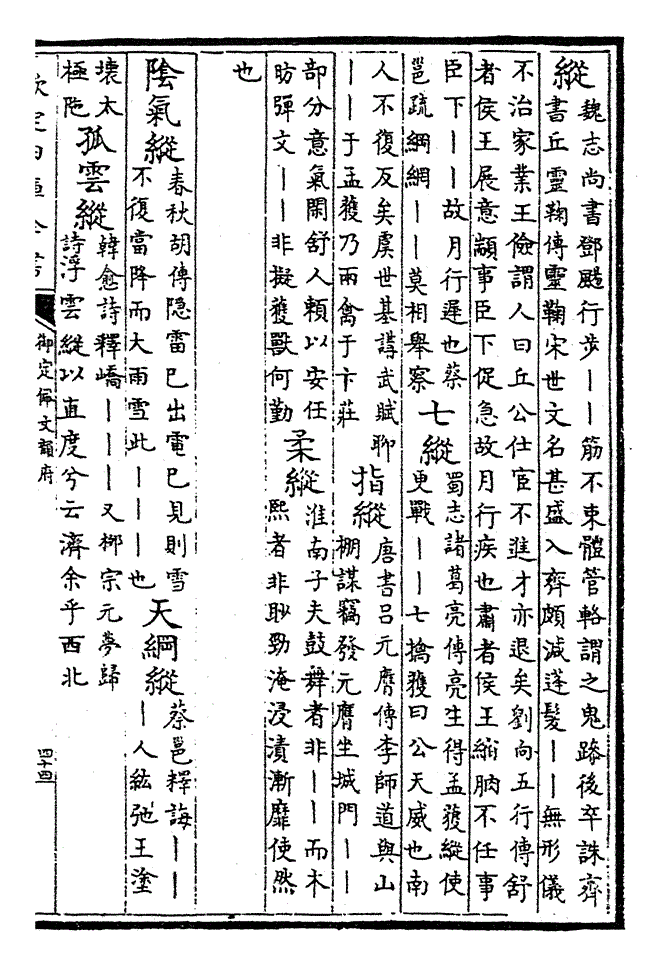 縱
魏志尚書鄧颺行步｜｜筋不束體管輅謂之鬼躁後卒誅齊
書丘靈鞠傳靈鞠宋世文名甚盛入齊頗減蓬髮｜｜無形儀
不治家業王儉謂人曰丘公仕宦不進才亦退矣劉向五行傳舒
者侯王展意顓事臣下促急故月行疾也肅者侯王縮朒不任事
臣下｜｜故月行遲也蔡
邕疏綱網｜｜莫相舉察
七縱
蜀志諸葛亮傳亮生得孟獲縱使
更戰｜｜七擒獲曰公天威也南
人不復反矣虞世基講武賦聊
｜｜于孟獲乃兩禽于卞莊
指縱
唐書呂元膺傳李師道與山
棚謀竊發元膺坐城門｜｜
部分意氣閑舒人賴以安任
昉彈文｜｜非擬獲獸何勤
柔縱
淮南子夫鼓舞者非｜｜而木
熙者非眇勁淹浸漬漸靡使然
也
陰氣縱
春秋胡傳隐雷已出電已見則雪
不復當降而大雨雪此｜｜｜也
天綱縱
蔡邕釋誨｜｜
｜人紘弛王塗
壊太
極陁
孤雲縱
韓愈詩釋嶠｜｜｜又栁宗元夢歸
詩浮雲縱以直度兮云濟余乎西北
欽定四庫全書
御定佩文韻府
四十四